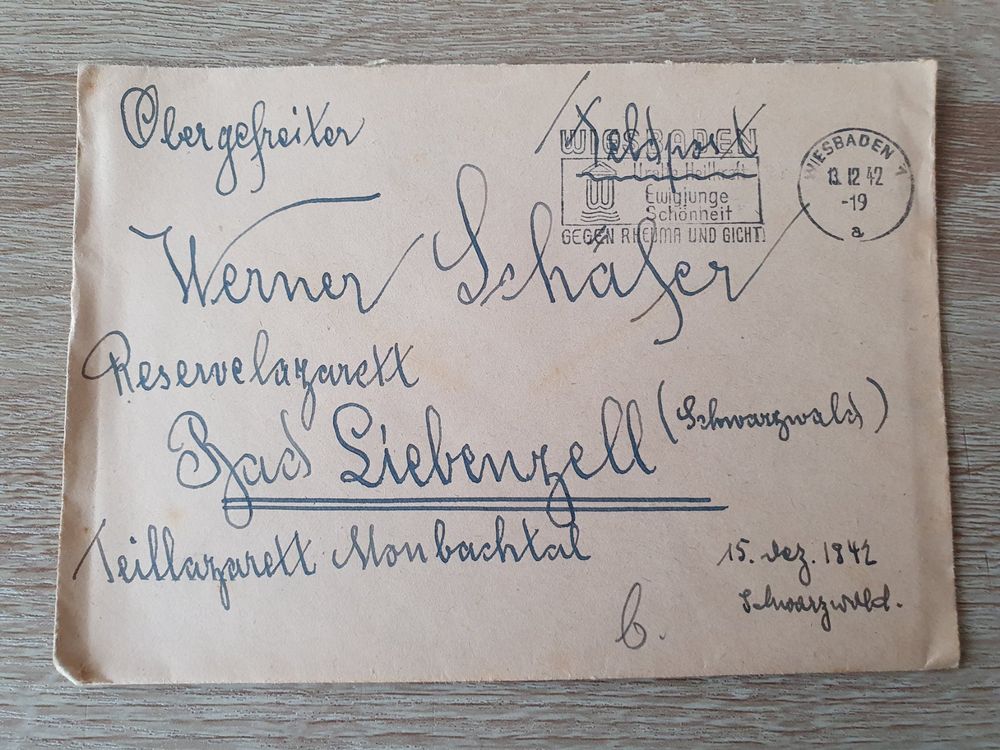 Obergefreiter
Feldpost
WIESBADEN
Ewigjunge
Schönheit
GEGEN RHEUMA UND GICHT!
WIESBADEN 1
13.12.42
-19
a
Werner Schäfer
Reservelazarett
Bad Liebenzell (Schwarzwald)
Teillazarett Monbachtal
15. Dez. 1942
Schwarzwald.
b.